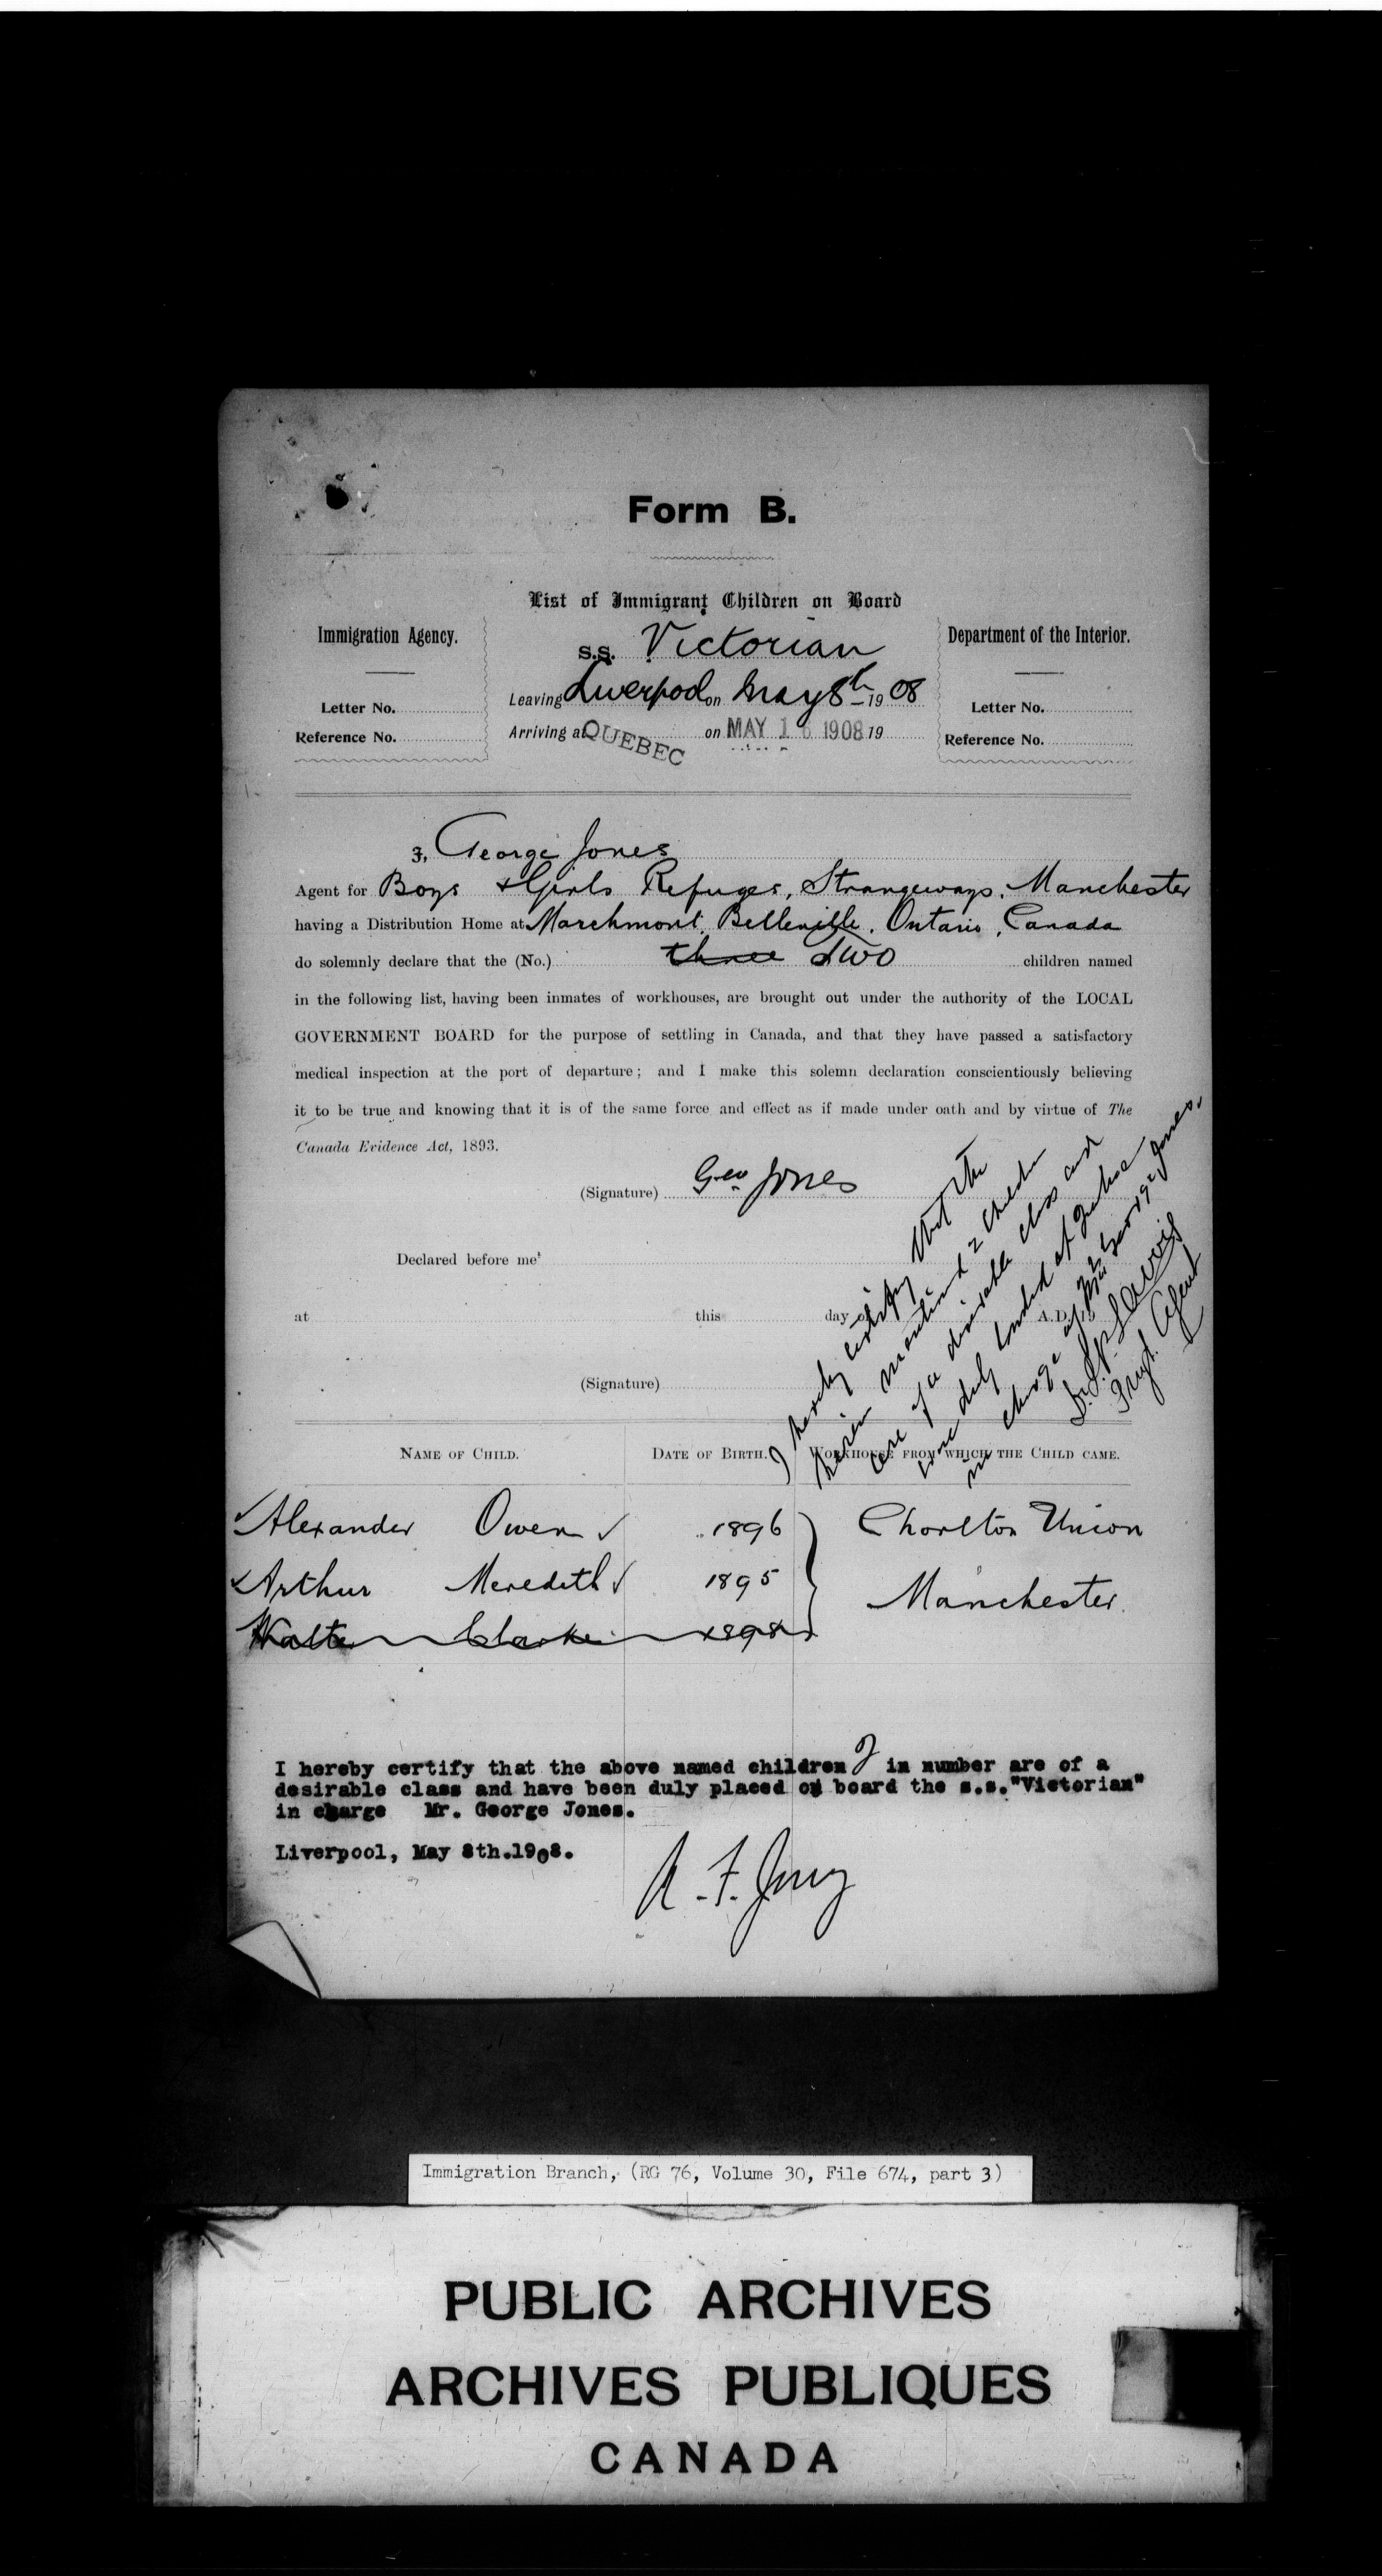 Form B.
List of Immigrant Children on Board
Immigration Agency.
S.S. Victorian
Department of the Interior.
Leaving Liverpool on May 8th 1908
Letter No.
Letter No.
Arriving at QUEBEC on MAY 16 1908 19
Reference No.
Reference No.
I, George Jones
Agent for Boys & Girls Refuges, Strangeways, Manchester
having a Distribution Home at Marchmont, Belleville, Ontario, Canada
do solemnly declare that the (No.) three Two children named
in the following list, having been inmates of workhouses, are brought out under the authority of the LOCAL
GOVERNMENT BOARD for the purpose of settling in Canada, and that they have passed a satisfactory
medical inspection at the port of departure; and I make this solemn declaration conscientiously believing
it to be true and knowing that it is of the same force and effect as if made under oath and by virtue of The
Canada Evidence Act, 1893.
(Signature) Geo Jones
Declared before me
at this day of A.D. 19
(Signature)
I hereby certify that the
herein mentioned 2 children
are of a desirable class and
were duly landed at Quebec
in charge of Mr George Jones.
Agent
NAME OF CHILD. DATE OF BIRTH. WORKHOUSE FROM WHICH THE CHILD CAME.
Alexander Owen 1896 Chorlton Union
Arthur Meredith 1895 Manchester.
Walter Clarke 1898
I hereby certify that the above named children 2 in number are of a
desirable class and have been duly placed on board the s.s."Victorian"
in charge Mr. George Jones.
Liverpool, May 8th.1908.
Immigration Branch, (RG 76, Volume 30, File 674, part 3)
PUBLIC ARCHIVES
ARCHIVES PUBLIQUES
CANADA